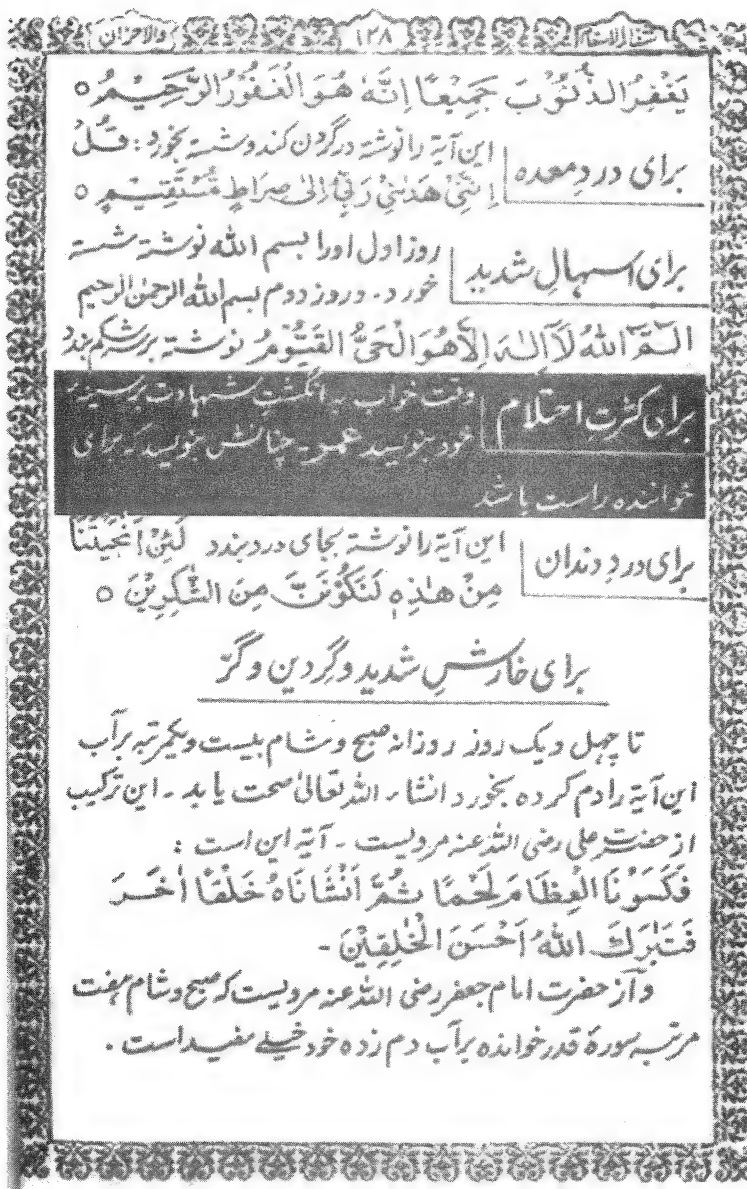 شفاء الاسقام ۱۲۸ والاحزان
يَغْفِرُ الذُّنُوْبَ جَمِيْعًا اِنَّهٗ هُوَ الْغَفُوْرُ الرَّحِيْمُ ○
برای دردِ معده این آیۃ را نوشتہ در گردن کند و شستہ بخورد : قُلْ
اِنَّنِیْ هَدٰىنِیْ رَبِّیْ اِلٰی صِرَاطٍ مُّسْتَقِیْمٍ ○
برای اسہالِ شدید روز اول اورا بسم الله نوشتہ شستہ
خورد ۔ و روز دوم بسم الله الرحمٰن الرحيم
الٓـمّٓ اللهُ لَآ اِلٰهَ اِلَّا هُوَ الْحَىُّ الْقَيُّوْمُ نوشتہ بر شکم بندد
برای کثرتِ احتلام وقت خواب بہ انگشتِ شہادت بر سینۂ
خود بنویسد عمر ۔ چنانش بنویسد کہ برای
خوانندہ راست باشد
برای دردِ دندان این آیۃ را نوشتہ بجای درد بندد لَئِنْ اَنْجَيْتَنَا
مِنْ هٰذِهٖ لَنَكُوْنَنَّ مِنَ الشّٰكِرِيْنَ ○
برای خارشِ شدید و گردین و گرّ
تا چہل و یک روز روزانہ صبح و شام بیست و یکمرتبہ بر آب
این آیۃ را دم کردہ بخورد انشاء اللہ تعالیٰ صحت یابد ۔ این ترکیب
از حضرت علی رضی اللہ عنہ مرویست ۔ آیۃ این است :
فَكَسَوْنَا الْعِظَامَ لَحْمًا ثُمَّ اَنْشَاْنَاهُ خَلْقًا اٰخَرَ
فَتَبٰرَكَ اللهُ اَحْسَنَ الْخٰلِقِيْنَ ۔
و از حضرت امام جعفر رضی اللہ عنہ مرویست کہ صبح و شام ہفت
مرتبہ سورۂ قدر خواندہ بر آب دم زدہ خود خیلے مفید است ۔